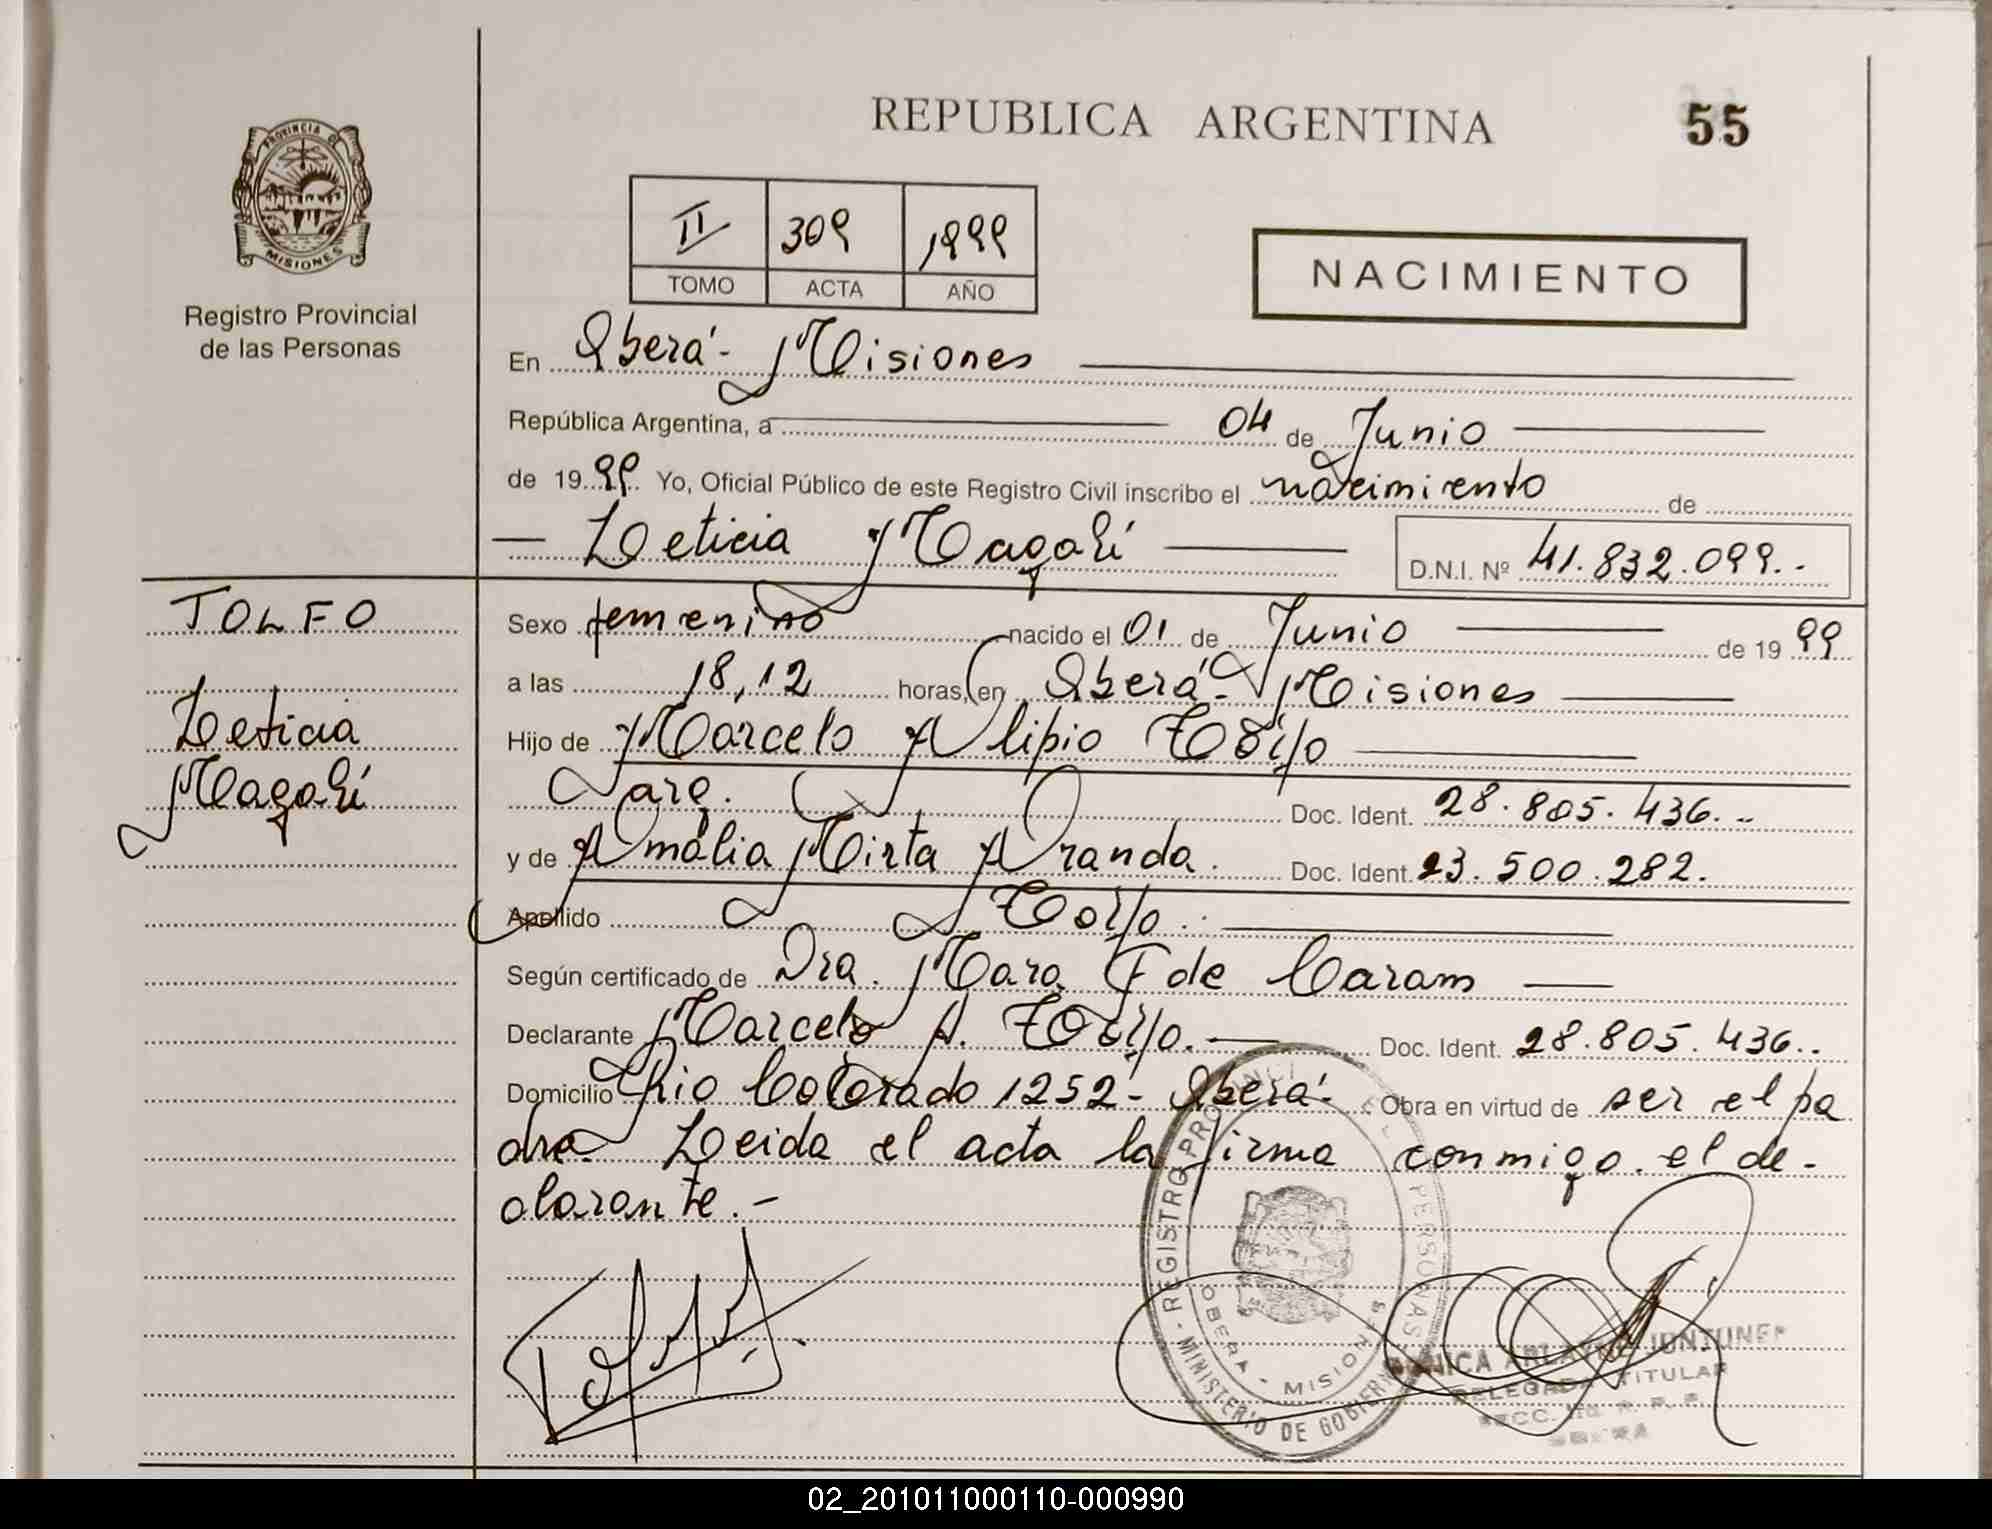 REPUBLICA ARGENTINA
55
PROVINCIA DE
MISIONES
Registro Provincial
de las Personas
II 309 1999
TOMO ACTA AÑO
NACIMIENTO
En Oberá - Misiones
República Argentina, a 04 de Junio
de 1999 Yo, Oficial Público de este Registro Civil inscribo el nacimiento de
Leticia Magalí
D.N.I. Nº 41.832.099.-
TOLFO
Leticia
Magalí
Sexo femenino nacido el 01 de Junio de 1999
a las 18,12 horas, en Oberá - Misiones
Hijo de Marcelo Alipio Tolfo
arg. Doc. Ident. 28.805.436.-
y de Amalia Mirta Aranda. Doc. Ident. 23.500.282.
Apellido Tolfo.
Según certificado de Dra. Mara F de Caram
Declarante Marcelo A. Tolfo. Doc. Ident. 28.805.436..
Domicilio Rio Colorado 1252 - Oberá - Obra en virtud de ser el pa
dre. Leida el acta la firma conmigo el de-
clarante.-
REGISTRO PROVINCIAL DE PERSONAS
OBERA - MISIONES
MINISTERIO DE GOBIERNO
DELEGADA TITULAR
02_201011000110-000990